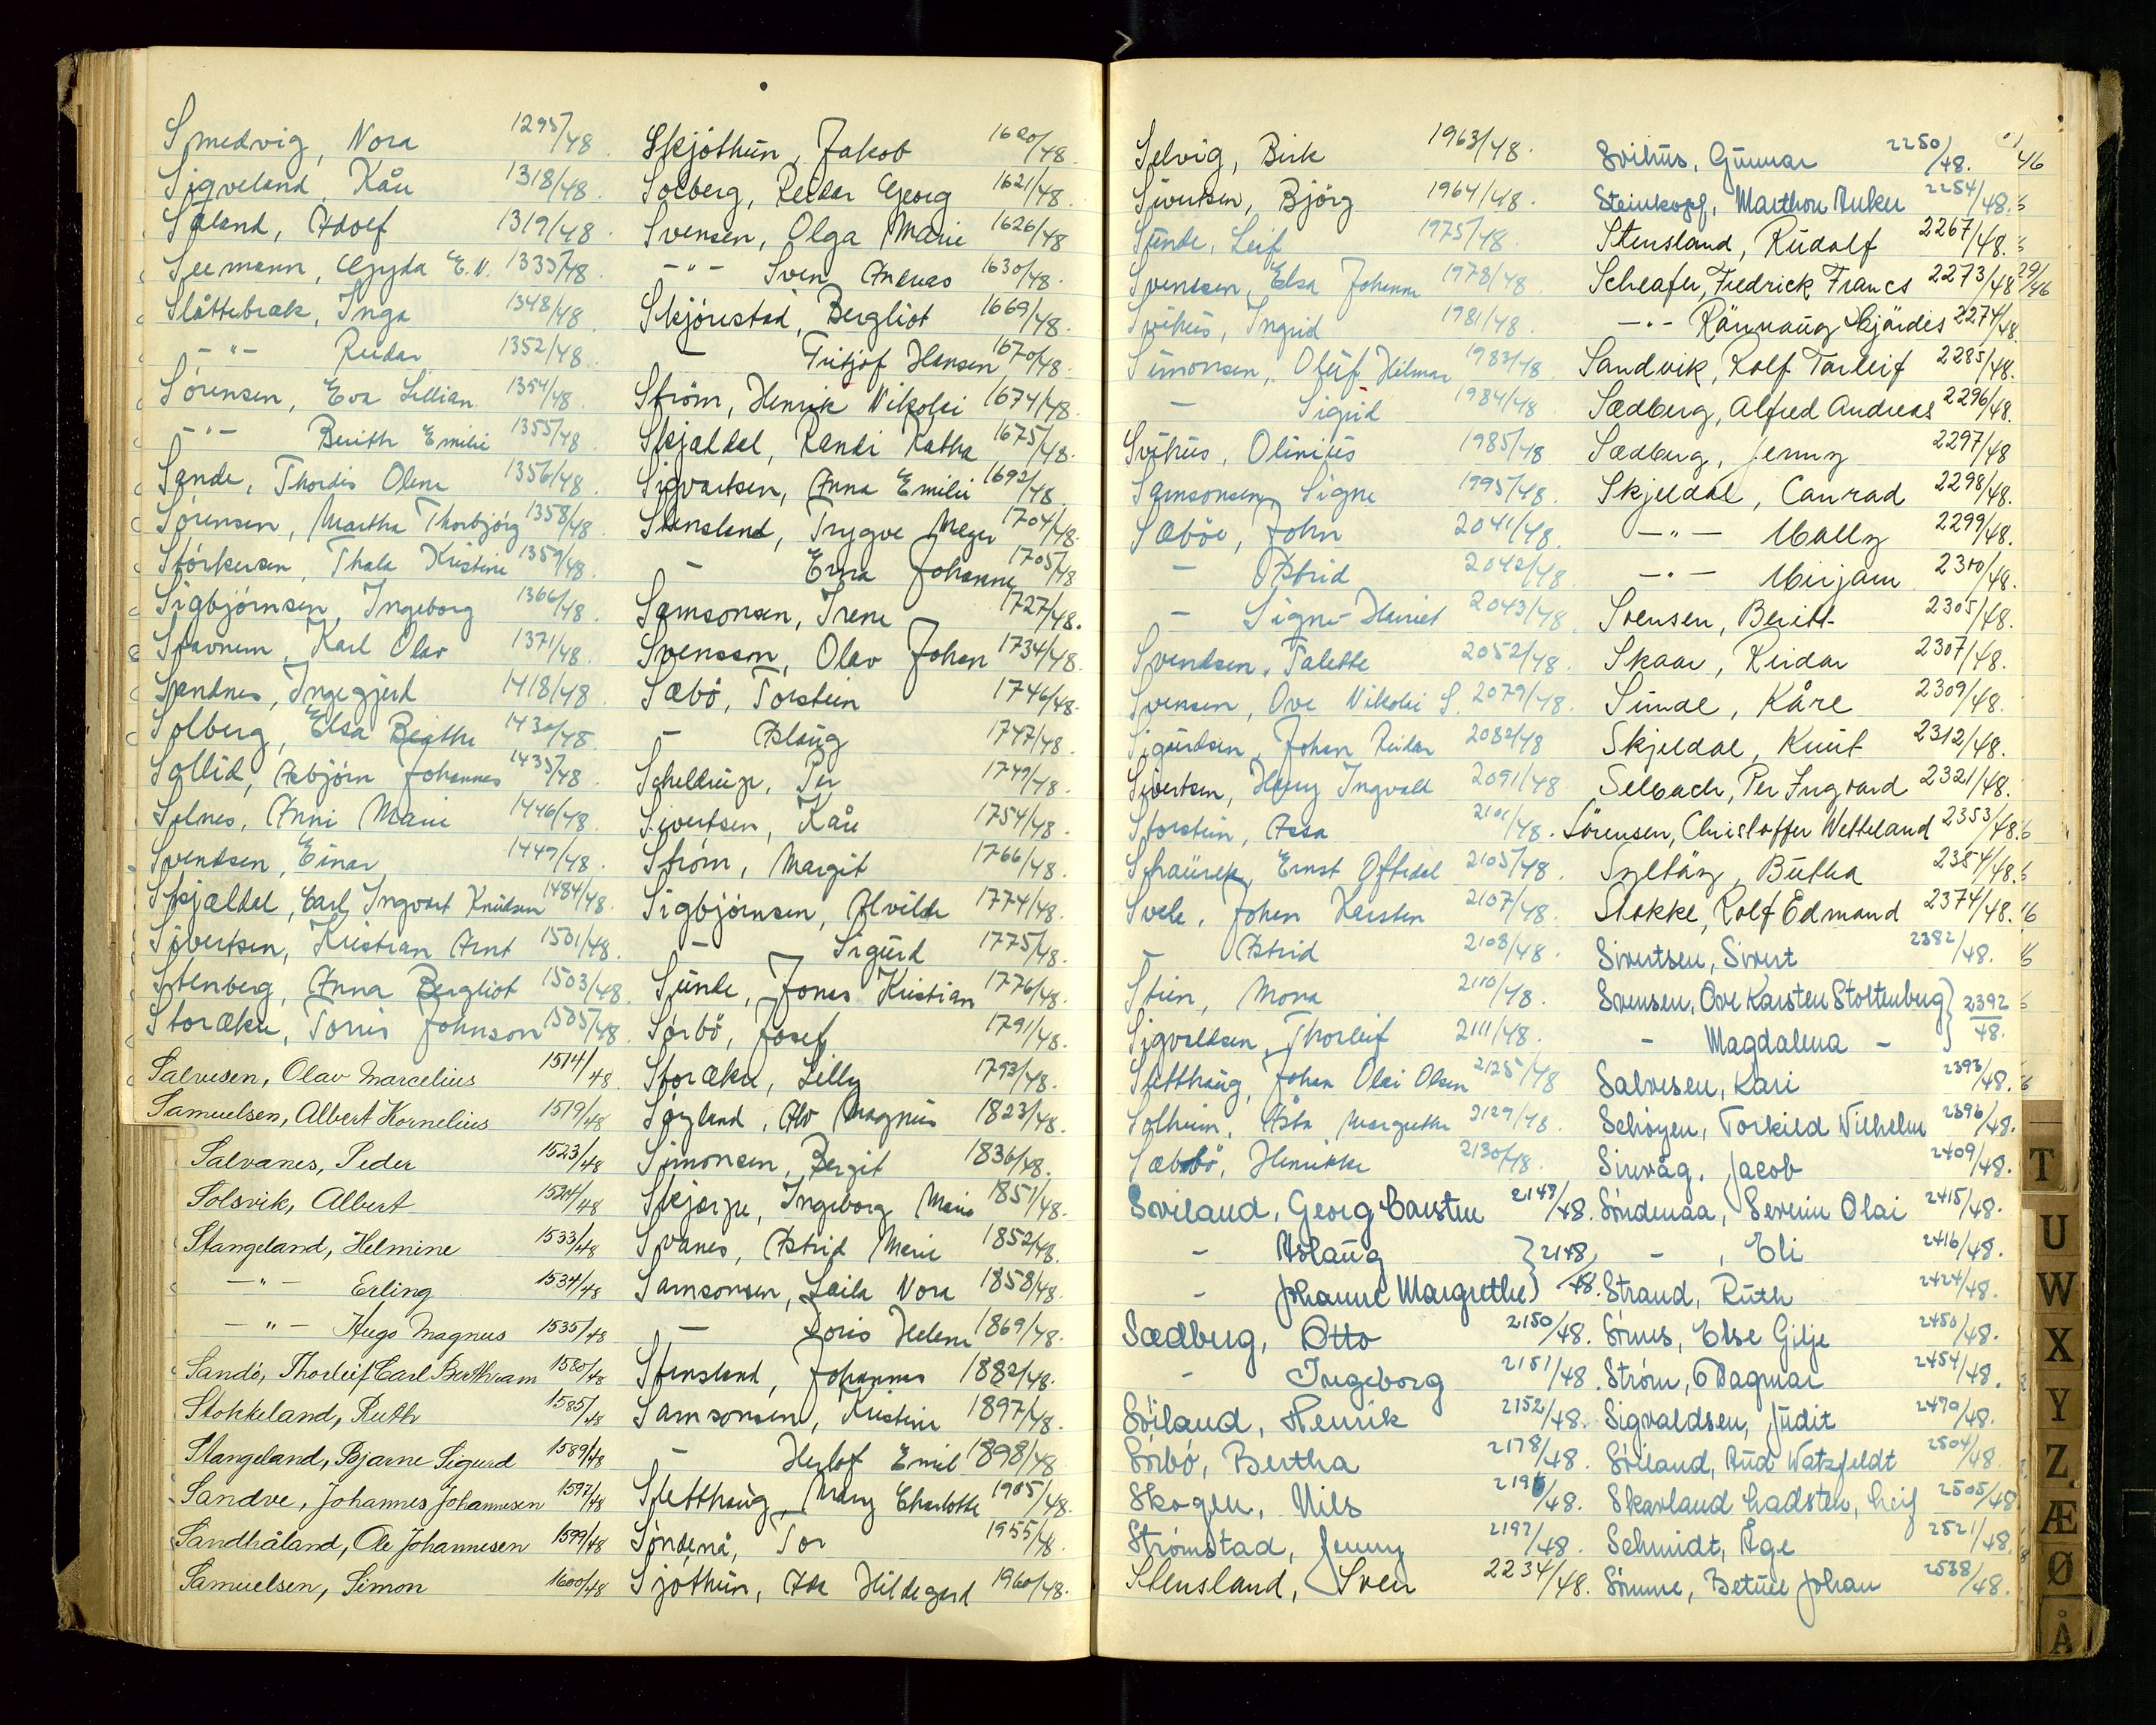 Smedvig, Nora 1295/48
Sigveland, Kåre 1318/48.
Såland, Adolf 1319/48.
Seemann, Gyda E.N. 1335/48
Slåttebrak, Inga 1348/48
-"- Reidar 1352/48
Sørensen, Eva Lillian 1354/48
-"- Berith Emilie 1355/48
Sande, Thordis Olene 1356/48.
Sørensen, Martha Thorbjörg 1358/48
Störkersen, Thala Kristine 1359/48.
Sigbjörnsen, Ingeborg 1366/48.
Stavnem, Karl Olav 1371/48.
Sandnes, Ingegjerd 1418/48
Solberg, Elsa Beathe 1430/48
Sollid, Asbjörn Johannes 1435/48
Selnes, Anni Marie 1446/48.
Svendsen, Einar 1449/48.
Skjældal, Carl Ingvart Knudsen 1484/48.
Sivertsen, Kristian Arnt 1501/48.
Stenberg, Anna Bergliot 1503/48
Storæker, Tonis Johnson 1505/48
Salvesen, Olav Marcelius 1514/48.
Samuelsen, Albert Kornelius 1519/48
Salvanes, Peder 1523/48
Solsvik, Albert 1524/48
Stangeland, Helmine 1533/48
-"- Erling 1534/48
-"- Hugo Magnus 1535/48
Sandö, Thorleif Carl Berthram 1580/48
Stokkeland, Ruth 1585/48
Stangeland, Bjarne Sigurd 1589/48
Sandve, Johannes Johannesen 1597/48
Sandhåland, Ole Johannesen 1599/48
Samuelsen, Simon 1600/48
Skjöthun, Jakob 1620/48.
Solberg, Reidar Georg 1621/48.
Svensen, Olga Marie 1626/48
-"- Sven Andreas 1630/48.
Skjörestad, Bergliot 1669/48.
- Fritjof Hansen 1670/48.
Ström, Henrik Nikolai 1674/48.
Skjældal, Randi Katha 1675/48.
Sigvartsen, Anna Emilie 1692/48
Stensland, Trygve Meyer 1704/48.
- Erna Johanne 1705/48
Samsonsen, Irene 1727/48.
Svensson, Olav Johan 1734/48.
Sæbö, Torstein 1746/48.
- Aslaug 1747/48.
Scheldrup, Per 1749/48.
Sivertsen, Kåre 1754/48.
Ström, Margit 1766/48.
Sigbjörnsen, Alvilde 1774/48.
- Sigurd 1775/48.
Sunde, Jonas Kristian 1776/48.
Sørbö, Josef 1791/48.
Storæker, Lilly 1793/48.
Søyland, Alv Magnus 1823/48.
Simonsen, Bergit 1836/48.
Skjerpe, Ingeborg Marie 1851/48.
Svanes, Astrid Marie 1852/48.
Samsonsen, Laila Nora 1858/48.
- Doris Helene 1869/48.
Stensland, Johannes 1882/48.
Samsonsen, Kristine 1897/48.
- Herlof Emil 1898/48
Sletthaug, Mary Charlotte 1905/48.
Söndenå, Tor 1955/48.
Sjöthun, Ada Hildegard 1960/48.
Selvig, Birk 1963/48.
Sivertsen, Björg 1964/48.
Sunde, Leif 1975/48.
Svendsen, Elsa Johanne 1978/48
Svihus, Ingrid 1981/48.
Simonsen, Oluf Hilmar 1983/48
- Sigrid 1984/48
Svihus, Olinius 1985/48
Samsonsen, Signe 1995/48.
Sæböe, John 2041/48.
- Astrid 2042/48
- Signe Harriet 2043/48
Svendsen, Talette 2052/48.
Svensen, Ove Nikolai S. 2079/48.
Sigurdsen, Johan Reidar 2082/48
Sivertsen, Harry Ingvald 2091/48
Storstein, Assa 2101/48.
Schaurek, Ernst Oftedal 2105/48.
Svele, Johan Karsten 2107/48.
- Astrid 2108/48.
Stien, Mona 2110/48.
Sigvaldsen, Thorleif 2111/48.
Sletthaug, Johan Olai Olsen 2125/48
Solheim, Åsta Margrethe 2129/48.
Sæbö, Henrikke 2130/48.
Sviland, Georg Carsten 2147/48.
- Aslaug } 2148/48.
- Johanne Margrethe }
Sædberg, Otto 2150/48.
- Ingeborg 2151/48.
Söiland, Henrik 2152/48.
Sörbö, Bertha 2178/48.
Skogen, Nils 2196/48.
Strømstad, Jenny 2197/48.
Stensland, Sven 2234/48.
Svihus, Gunnar 2250/48. 46
Steinkopf, Marthon Anker 2254/48.
Stensland, Rudolf 2267/48.
Scheafer, Fredrick Francs 2273/48 29/46
-"- Rännaug Hjördes 2274/48.
Sandvik, Rolf Torleif 2285/48.
Sædberg, Alfred Andreas 2296/48.
Sædberg, Jenny 2297/48
Skjeldal, Conrad 2298/48.
-"- Mally 2299/48.
-"- Mirjam 2300/48.
Svensen, Beritt 2305/48.
Skaar, Reidar 2307/48.
Sunde, Kåre 2309/48.
Skjeldal, Knut 2312/48.
Selbach, Per Ingvard 2321/48.
Sörensen, Christoffer Wetteland 2353/48.
Syltöy, Butha 2354/48.
Stokke, Rolf Edmund 2374/48.
Sivertsen, Sivert 2382/48.
Svensen, Ove Karsten Stoltenberg } 2392/48.
- Magdalena - }
Salvesen, Kari 2393/48.
Schöyen, Torkild Wilhelm 2396/48.
Sirevåg, Jacob 2409/48.
Söndenaa, Severin Olai 2415/48.
- , Eli 2416/48.
Strand, Ruth 2424/48.
Sörnes, Else Gilje 2450/48.
Ström, Dagmar 2454/48.
Sigvaldsen, Judit 2470/48.
Söiland, Aud Watzfeldt 2504/48.
Skarland Ladsten, Leif 2505/48
Schmidt, Åge 2521/48.
Sömme, Betuel Johan 2538/48.
T
U
W
X
Y
Z
Æ
Ø
Å